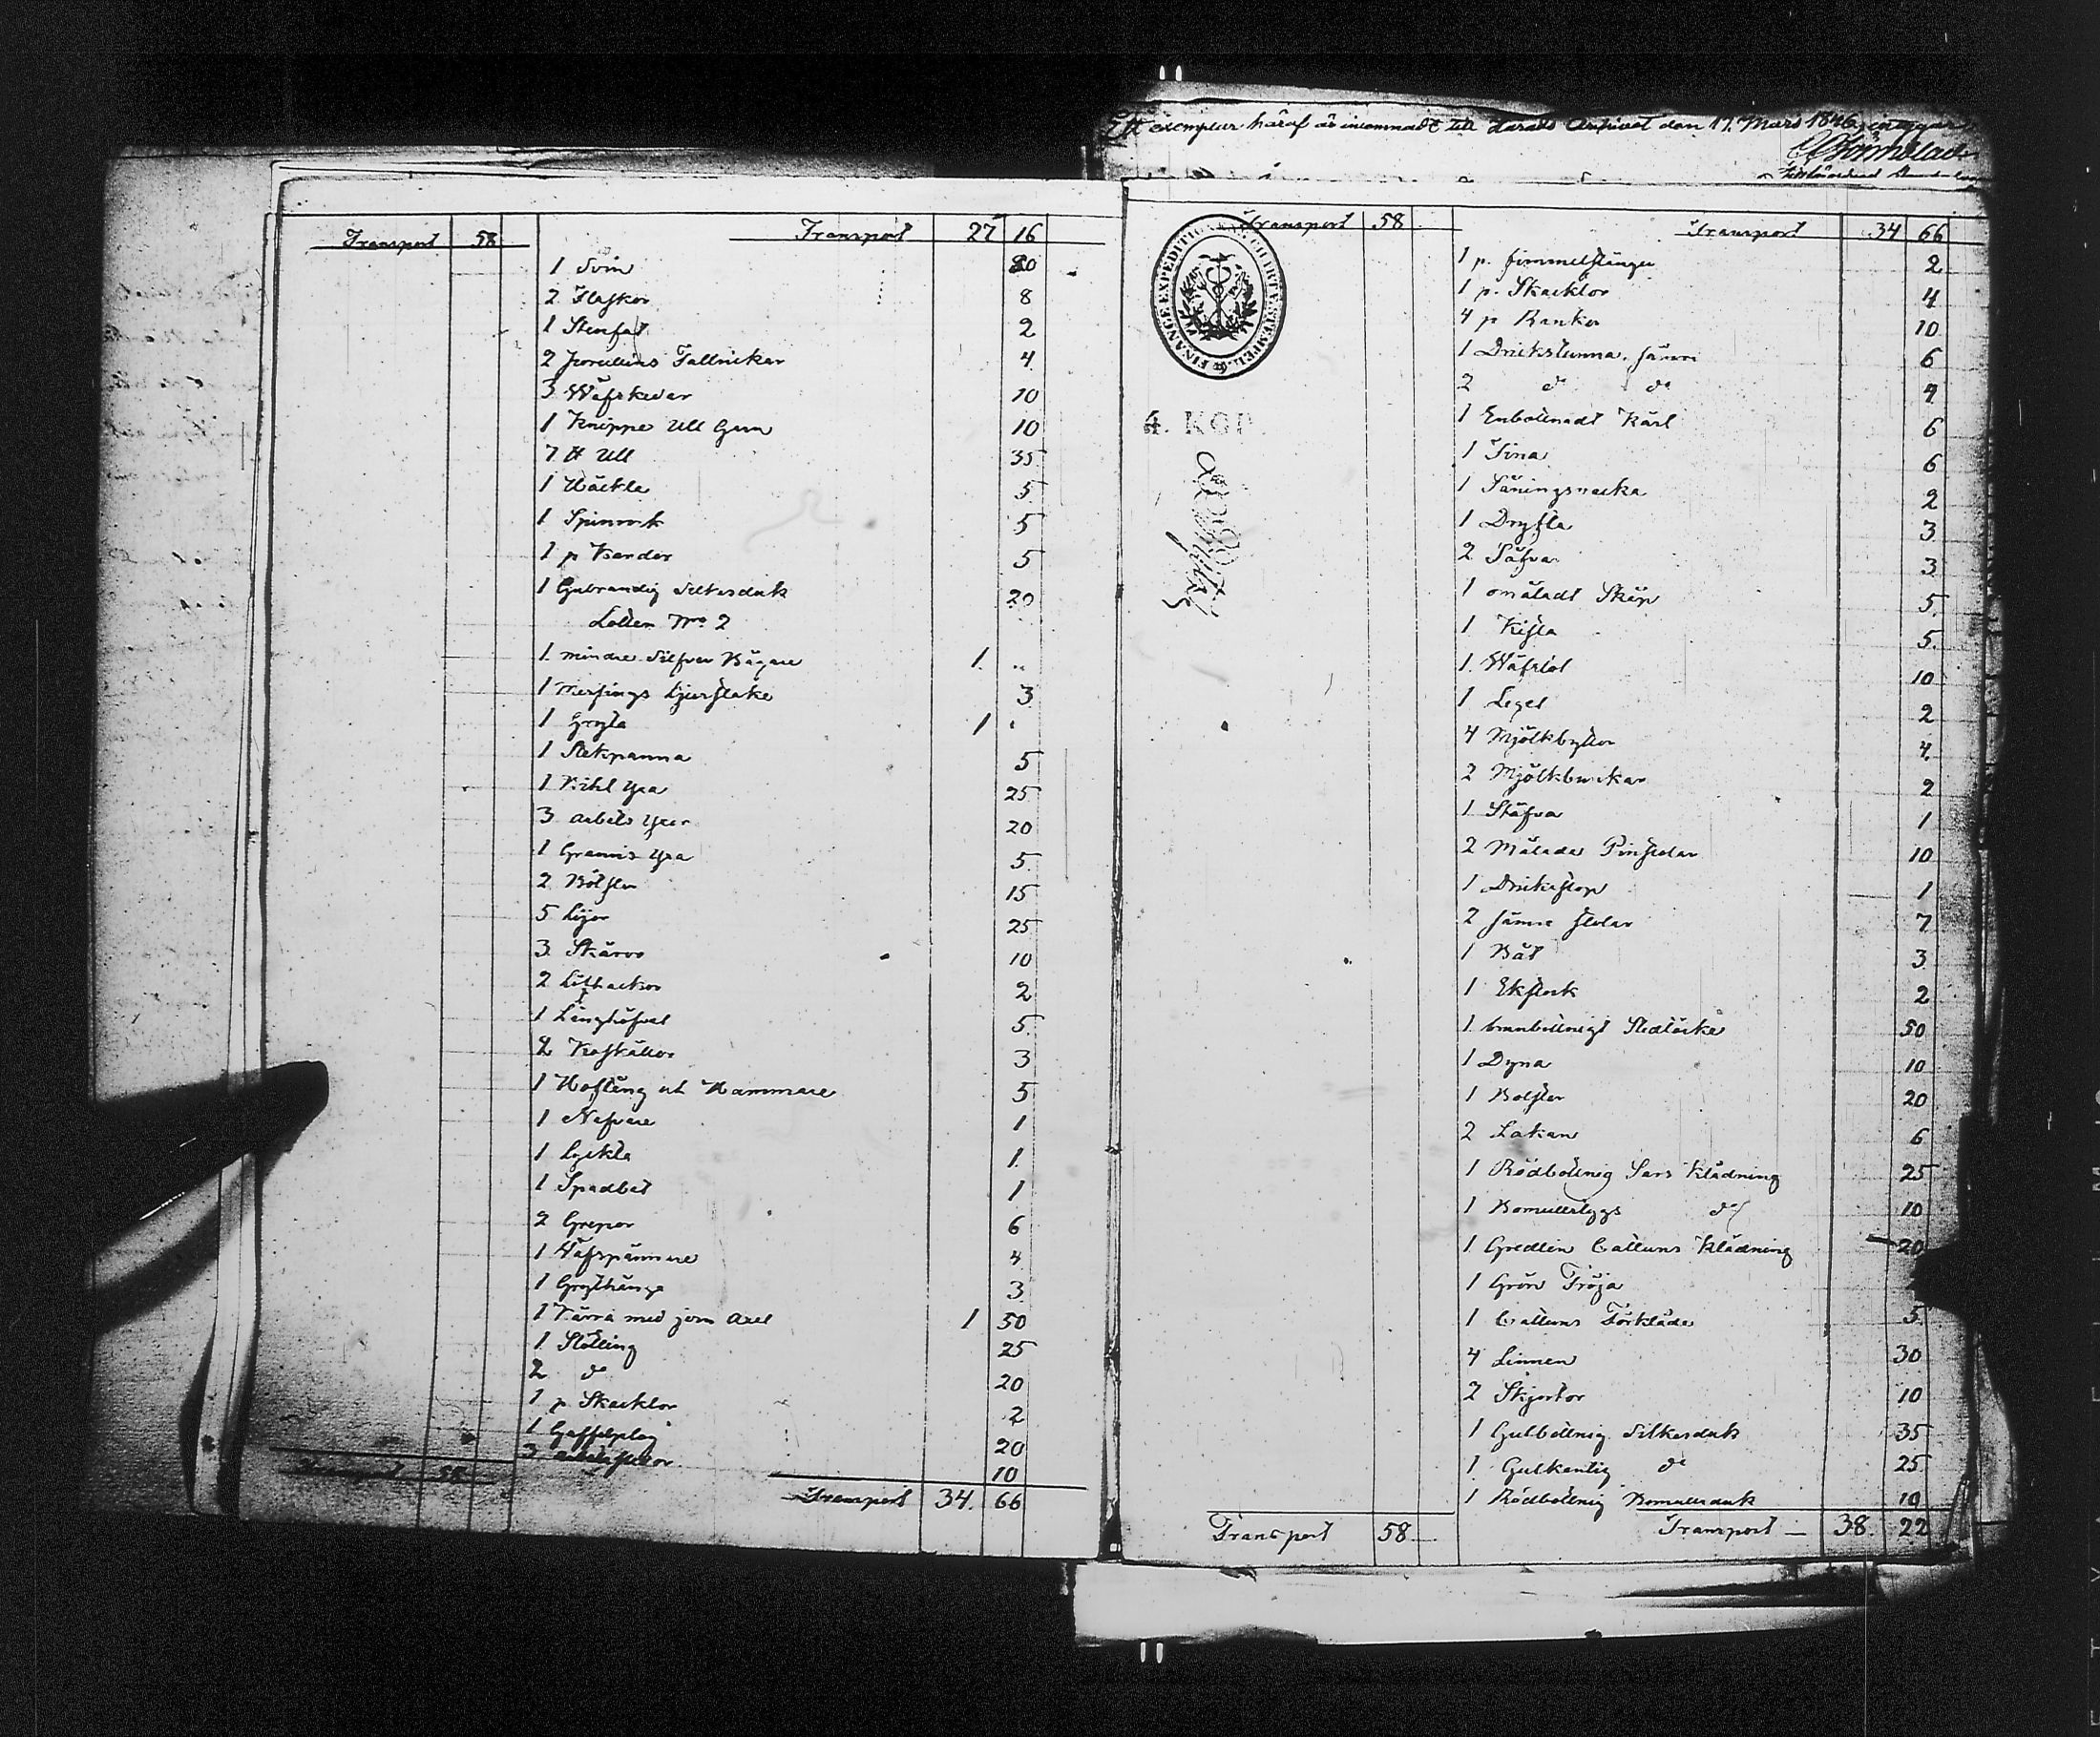 Ett exemplar häraf är inlemnadt till Härads Arkivet den 17. Mars 1846,
Transport 58 Transport 27 16
1 Svin 80
2 Flaskor 8
1 Stenfat 2
2 porcellins Tallrickar 4
3 Wäfskedar 10
1 Knippe Ull Garn 10
7 ℔ Ull 35
1 Häckla 5
1 Spinrock 5
1 p Kardor 5
1 Gulrandig Silkesduk 20
Lotten No 2
1 mindre Silfver Bägare 1 "
1 Messings Ljusstake 3
1 Gryta 1 "
1 Stekpanna 5
1 Bihl Yxa 25
3 Arbets Yxor 20
1 Yxa 5
2 15
5 Lijor 25
3 Skäror 10
2 2
1 5
2 Koskällor 3
1 Hoftång och Hammare 5
1 Nafvare 1
1 Lyckta 1
1 1
2 Grepar 6
1 Wäfspännare 4
1 Grythänge 3
1 Kärra med jern Axel 1 50
1 Stötting 25
2 do 20
1 p Skacklor 2
1 Gaffelplog 20
3 10
Transport 58 Transport 34 66
Transport 58 Transport 34 66
FINANCE EXPEDITIONENS CHARTÆ STEMPEL
4. KOP.
1 p. fimmelstänger 2
1 p. Skacklor 4
4 p Bankor 10
1 Drickstunna sämre 6
2 do do 4
1 Enbottnadt Kärl 6
1 Tina 6
1 2
1 3
2 Såfvar 3
1 omåladt Skåp 5
1 Kista 5
1 Wäfstol 10
1 Legel 2
4 Mjölkbyttor 4
2 Mjölkbunckar 2
1 Stäfva 1
2 Målade Pinstolar 10
1 Drickstop 1
2 sämre stolar 7
1 Båt 3
1 Ekstock 2
1 brunbottnigt Sledtäcke 50
1 Dyna 10
1 Bolster 20
2 Lakan 6
1 Rödbottnig Sars Klädning 25
1 Bomullstygs do 10
1 Gredlin Cattuns Klädning 20
1 Grön Tröja
1 Cattuns Förkläde 5
4 Linnen 30
2 Skjortor 10
1 Gulbottnig Silkesduk 35
1 Gulkantig do 25
1 Rödbottnig Bomullsduk 10
Transport 58 Transport 38 22